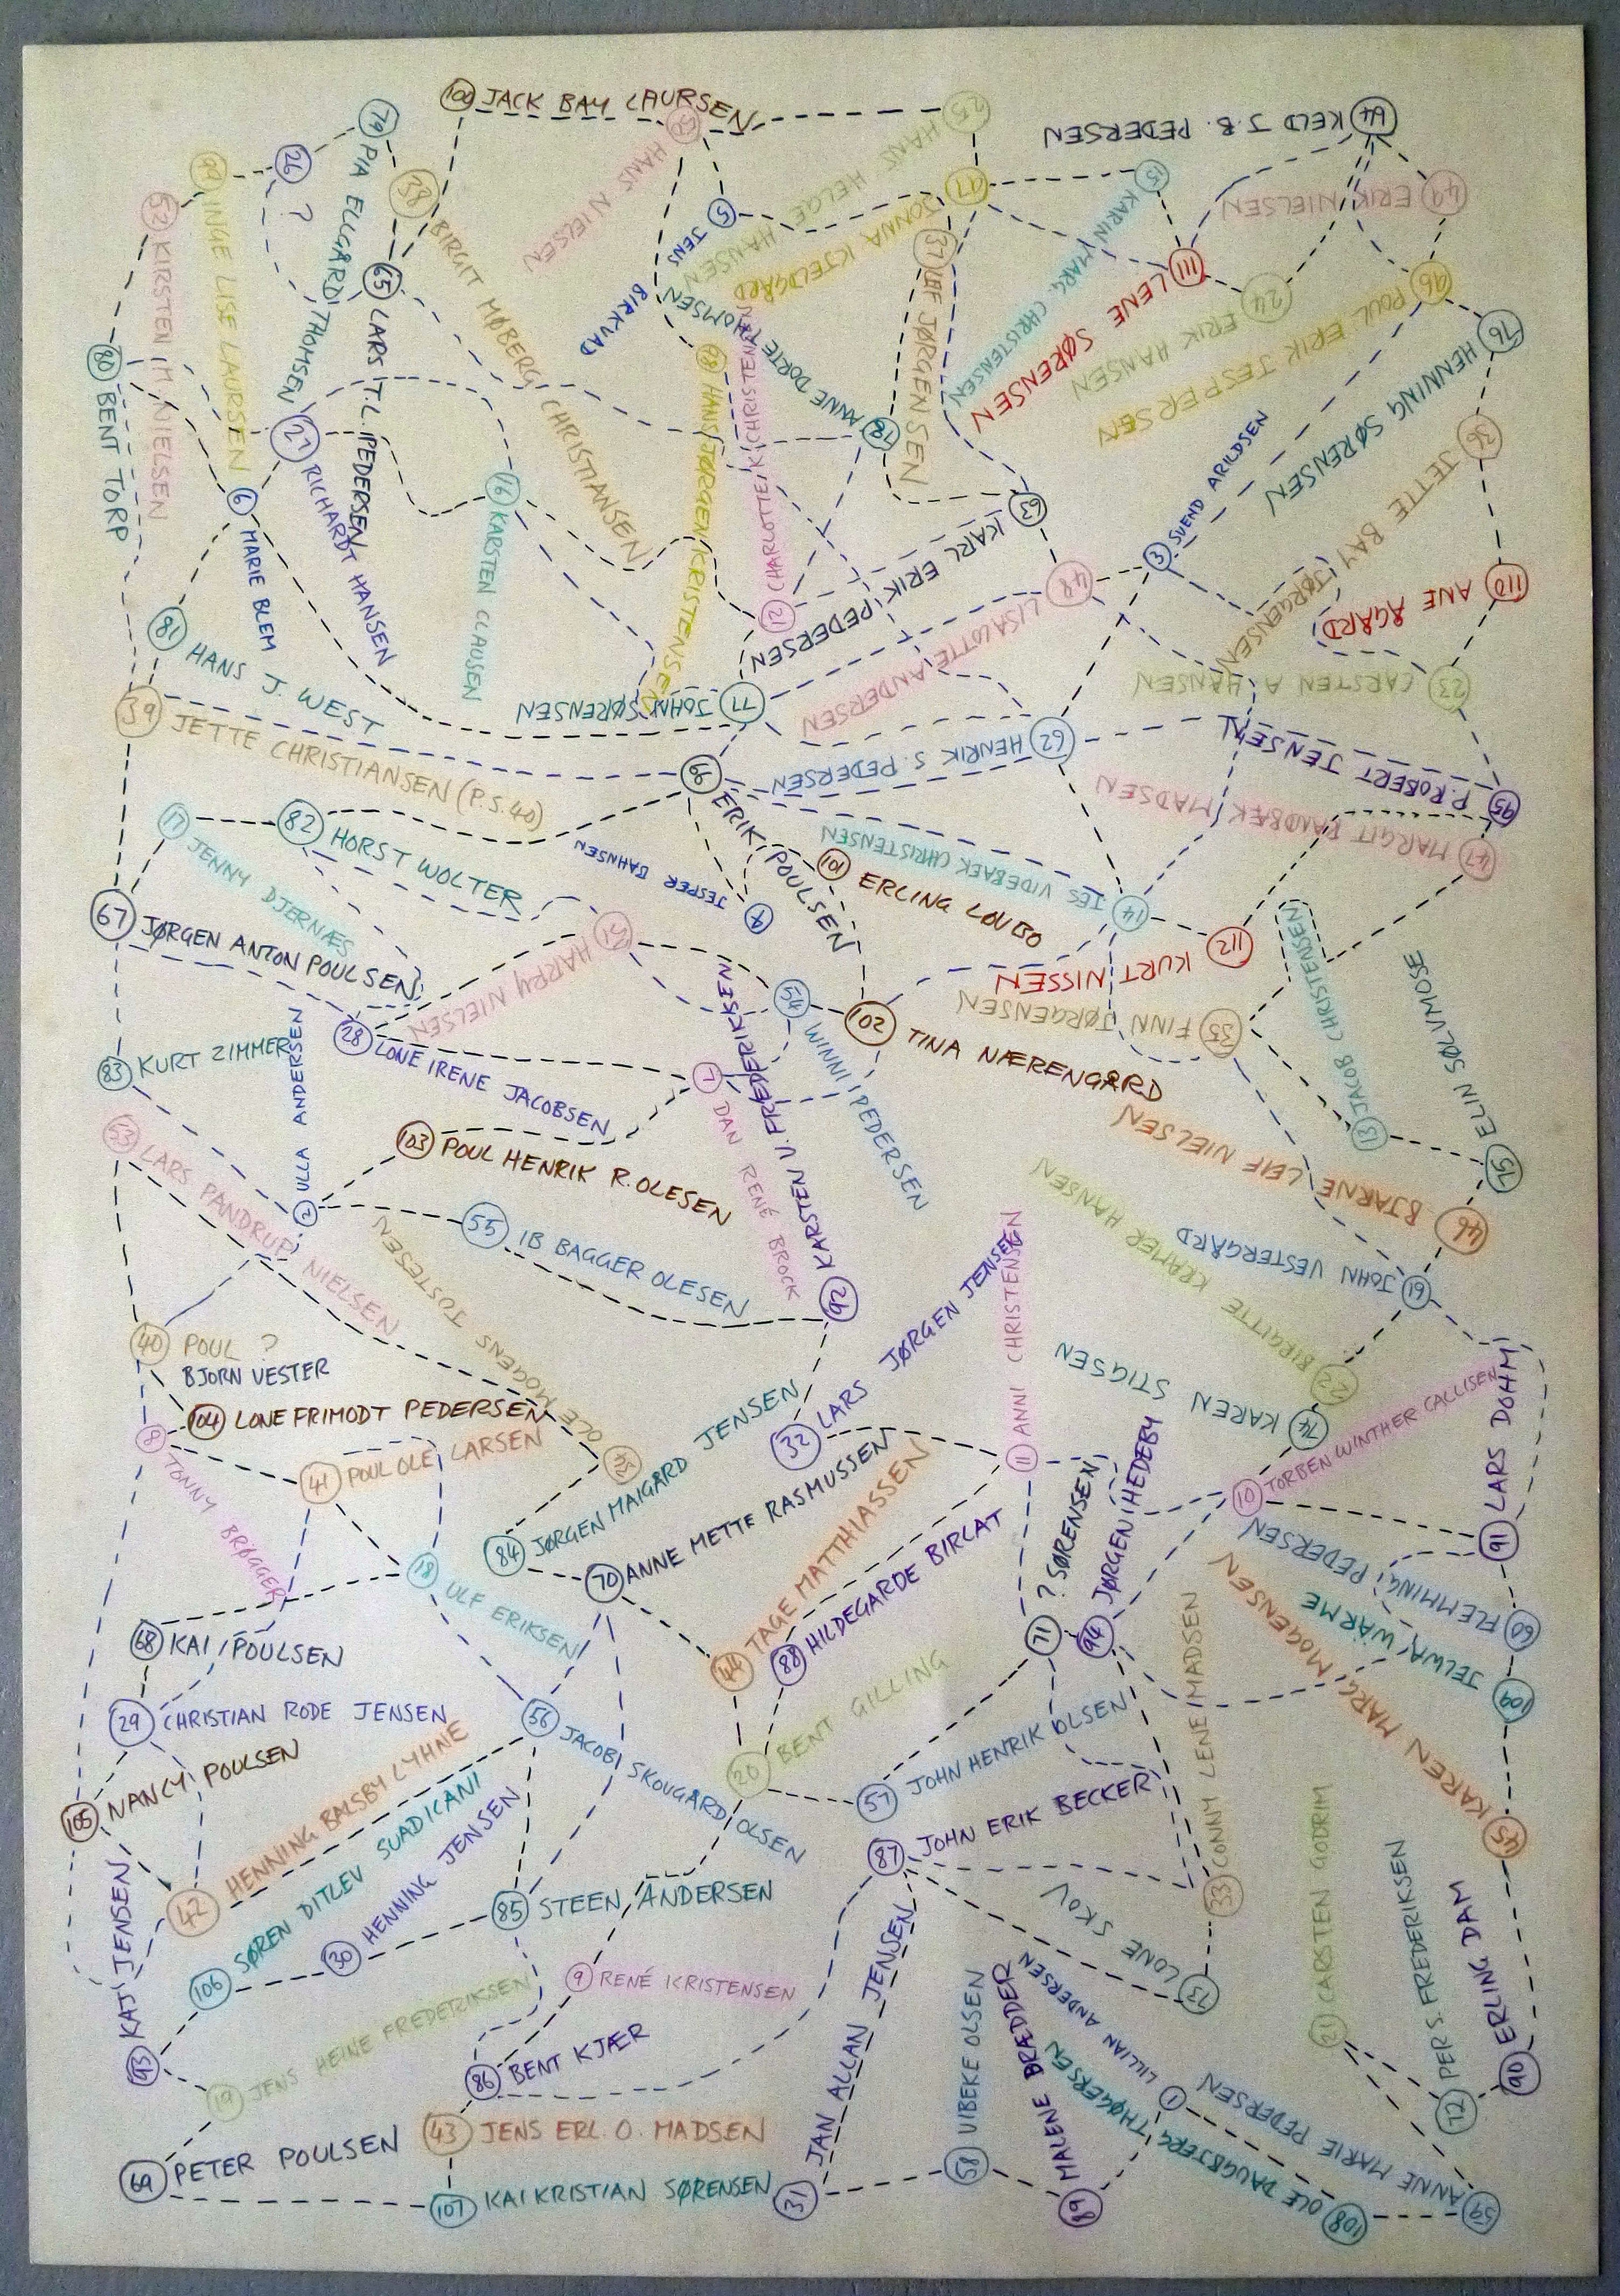 100 JACK BAY LAURSEN
50 HANS NIELSEN
25 HANS HELGE HANSEN
64 KELD J.B. PEDERSEN
79 PIA ELLGÅRD THOMSEN
26 ?
38 BIRGIT MØBERG CHRISTIANSEN
99 INGE LISE LAURSEN
52 KIRSTEN M. NIELSEN
5 JENS BIRKVAD
97 JONNA KJELDGÅRD
15 KARIN MARG. CHRISTENSEN
49 ERIK NIELSEN
37 LEIF JØRGENSEN
65 LARS T.L. PEDERSEN
111 LENE SØRENSEN
24 ERIK HANSEN
96 POUL ERIK JESPERSEN
76 HENNING SØRENSEN
80 BENT TORP
98 HANS JØRGEN KRISTENSEN
78 ANNE DORTE THOMSEN
27 RICHARDT HANSEN
36 JETTE BAY JØRGENSEN
6 MARIE BLEM
16 KARSTEN CLAUSEN
63 KARL ERIK PEDERSEN
3 SVEND ARILDSEN
48 LISALOTTE ANDERSEN
110 ANE ÅGÅRD
12 CHARLOTTE K. CHRISTENSEN
81 HANS J. WEST
23 CARSTEN A HANSEN
77 JOHN SØRENSEN
39 JETTE CHRISTIANSEN (P.S.40)
62 HENRIK S. PEDERSEN
66 ERIK POULSEN
95 P. ROBERT JENSEN
17 JENNY DJERNÆS
82 HORST WOLTER
47 MARGIT RANDBÆK MADSEN
101 ERLING LOVBO
4 JESPER BAHNSEN
14 IES VIDEBAEK CHRISTENSEN
67 JØRGEN ANTON POULSEN
51 HARRY NIELSEN
112 KURT NISSEN
54 WINNI PEDERSEN
102 TINA NÆRENGÅRD
35 FINN JØRGENSEN
28 LONE IRENE JACOBSEN
83 KURT ZIMMER
7 DAN RENÉ BROCK
13 JACOB CHRISTENSEN
53 LARS PANDRUP NIELSEN
103 POUL HENRIK R. OLESEN
75 ELIN SØLVMOSE
2 ULLA ANDERSEN
55 IB BAGGER OLESEN
46 BJARNE LEIF NIELSEN
92 KARSTEN N. FREDERICKSEN
61 JOHN VESTERGÅRD
40 POUL ?
BJORN VESTER
22 BIRGITTE KRAMER HANSEN
104 LONE FRIMODT PEDERSEN
74 KAREN STIGSEN
8 TONNY BRØGGER
32 LARS JØRGEN JENSEN
11 ANNI CHRISTENSEN
41 POUL OLE LARSEN
OLE MOGENS TOSTESEN
10 TORBEN WINTHER CALLISEN
84 JØRGEN MAIGÅRD JENSEN
91 LARS DOHM
18 ULF ERIKSEN
70 ANNE METTE RASMUSSEN
60 FLEMMING PEDERSEN
68 KAI POULSEN
71 ? SØRENSEN
94 JØRGEN HEDEBY
44 TAGE MATTHIASSEN
88 HILDEGARDE BIRCAT
109 JELWA WÄRME
29 CHRISTIAN RODE JENSEN
56 JACOB SKOUGÅRD OLSEN
20 BENT GILLING
57 JOHN HENRIK OLSEN
105 NANCY POULSEN
45 KAREN MARG. MOGENSEN
87 JOHN ERIK BECKER
33 CONNY LENE MADSEN
42 HENNING BALSBY LYHNE
85 STEEN ANDERSEN
30 HENNING JENSEN
106 SØREN DITLEV SUADICANI
9 RENÉ KRISTENSEN
73 LONE SKOV
21 CARSTEN GODRIM
93 KAJ JENSEN
86 BENT KJÆR
90 ERLING DAM
19 JENS HEINE FREDERIKSEN
1 LILLIAN ANDERSEN
72 PER S. FREDERIKSEN
43 JENS ERL. O. MADSEN
58 VIBEKE OLSEN
69 PETER POULSEN
107 KAI KRISTIAN SØRENSEN
31 JAN ALLAN JENSEN
89 MALENE BRÆDDER
108 OLE DAUGBJERG THØGERSEN
59 ANNE MARIE PEDERSEN